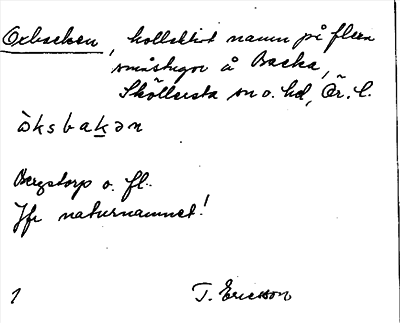 Oxbacken, kollektivt namn på flera
småstugor å Backa,
Sköllersta sn o. hd, Ör. l.
òksbakən
Bergstorp o. fl.
Jfr naturnamnet!
1 T. Ericsson